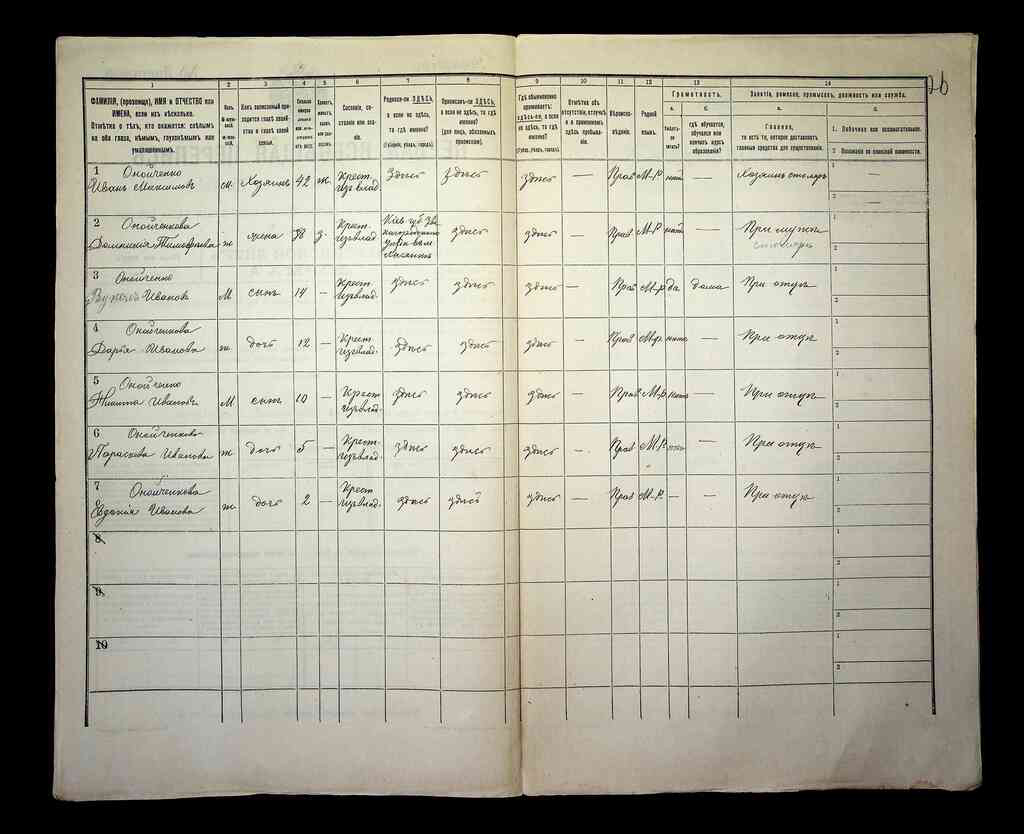 26
1 2 3 4 5 6 7 8 9 10 11 12 13 14
ФАМИЛІЯ, (прозвище), ИМЯ и ОТЧЕСТВО или
ИМЕНА, если ихъ нѣсколько.
Отмѣтка о тѣхъ, кто окажется: слѣпымъ
на оба глаза, нѣмымъ, глухонѣмымъ или
умалишеннымъ.
Полъ.
Какъ записанный при-
ходится главѣ хозяй-
ства и главѣ своей
семьи.
Сословіе, со-
стояніе или зва-
ніе.
Родился-ли ЗДѢСЬ,
а если не здѣсь,
то гдѣ именно?
(Губернія, уѣздъ, городъ).
Приписанъ-ли ЗДѢСЬ,
а если не здѣсь, то гдѣ
именно?
(Для лицъ, обязанныхъ
припискою).
Гдѣ обыкновенно
проживаетъ:
здѣсь-ли, а если
не здѣсь, то гдѣ
именно?
(Губерн., уѣздъ, городъ).
Отмѣтка объ
отсутствіи, отлучкѣ
и о временномъ
здѣсь пребыва-
ніи.
Вѣроиспо-
вѣданіе.
Родной
языкъ.
Грамотность.
а. б.
Умѣетъ-
ли
читать?
гдѣ обучается,
обучался или
кончилъ курсъ
образованія?
Занятіе, ремесло, промыселъ, должность или служба.
а. б.
Главное,
то есть то, которое доставляетъ
главныя средства для существованія.
1. Побочное или вспомогательное.
2. Положеніе по воинской повинности.
1 Онойченко
Иванъ Максимовъ м. Хозяинъ 42 ж. Крест. изъ влад. Здѣсь Здѣсь здѣсь — Прав М-Р нѣтъ — Хозяинъ столяръ 1 —
2 —
2 Онойченкова
Домникія Тимофѣева ж жена 38 з. Крест. изъ влад. Кіев. губ. здѣсь здѣсь — Прав М-Р нѣтъ — При мужѣ 1
столяръ 2
3 Онойченко
Иванов М сынъ 14 — Крест. изъ влад. здѣсь здѣсь здѣсь — Прав М-Р да дома При отцѣ 1
2
4 Онойченкова
Дарья Иванова ж дочь 12 — Крест. изъ влад. здѣсь здѣсь здѣсь — Прав М-Р нѣтъ — При отцѣ 1
2
5 Онойченко
Никита Ивановъ М сынъ 10 — Крест. изъ влад. здѣсь здѣсь здѣсь — Прав М-Р нѣтъ — При отцѣ 1
2
6 Онойченкова
Параскева Иванова ж дочь 5 — Крест. изъ влад. здѣсь здѣсь здѣсь — Прав М-Р — При отцѣ 1
2
7 Онойченкова
Евдокія Иванова ж. дочь 2 — Крест. изъ влад. здѣсь здѣсь здѣсь — Прав М-Р. — — При отцѣ 1
2
8 1
2
9 1
2
10 1
2